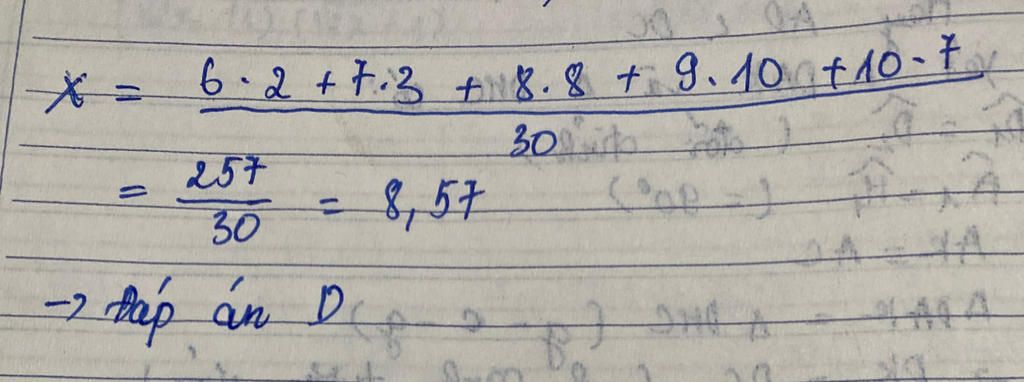 X = 6 · 2 + 7 · 3 + 8 . 8 + 9 . 10 + 10 · 7
30
= 257
30 = 8,57
→ Đáp án D